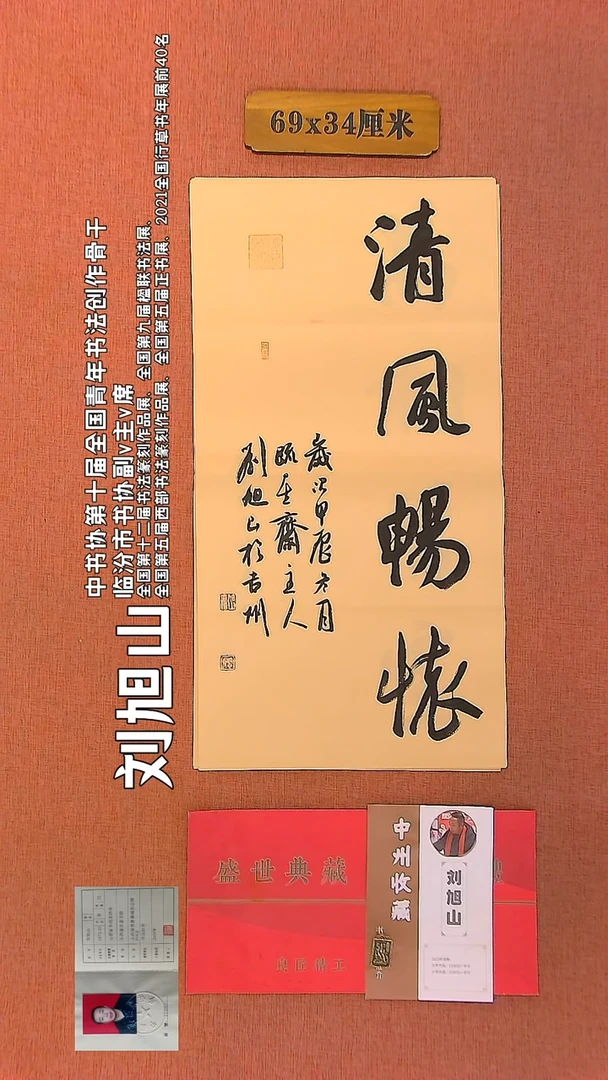 69x34厘米
清風暢懷
歲次甲辰六月
臨玉齋主人
劉旭山於吉州
刘旭山
中书协第十届全国青年书法创作骨干
临汾市书协副v主v席
全国第十二届书法篆刻作品展、全国第九届楹联书法展、
全国第五届西部书法篆刻作品展、全国第五届正书展、2021全国行草书年展前40名
盛世典藏
中州收藏
刘旭山